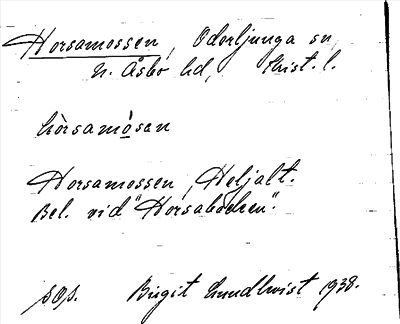 Horsamossen, Oderljunga sn,
N. Åsbo hd, Krist. l.
hòrsamòsan
Horsamossen, Heljalt.
Bel. vid "Horsabacken".
SOS. Birgit Lundkvist 1938.